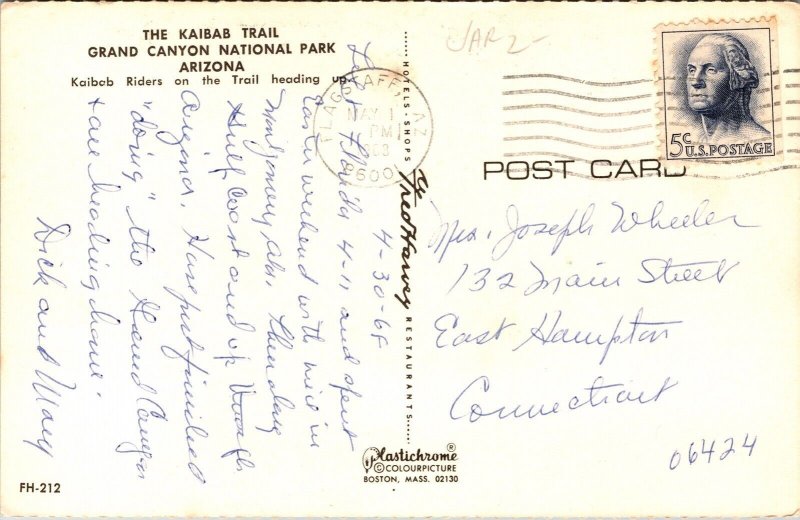 THE KAIBAB TRAIL
GRAND CANYON NATIONAL PARK
ARIZONA
Kaibab Riders on the Trail heading up.
4-30-68
Left Florida 4-11 and spent
Easter weekend with in
Montgomery, Ala. Then along
Gulf Coast and up through
Arizona. Have just finished
"doing" the Grand Canyon
+ are heading home.
Dick and Mary
FH-212
HOTELS · SHOPS
Fred Harvey
RESTAURANTS
Plastichrome®
© COLOURPICTURE
BOSTON, MASS. 02130
JAR 2-
FLAGSTAFF, AZ
MAY 1
PM
8600
5c
U.S. POSTAGE
POST CARD
Mrs. Joseph Wheeler
132 Main Street
East Hampton
Connecticut
06424